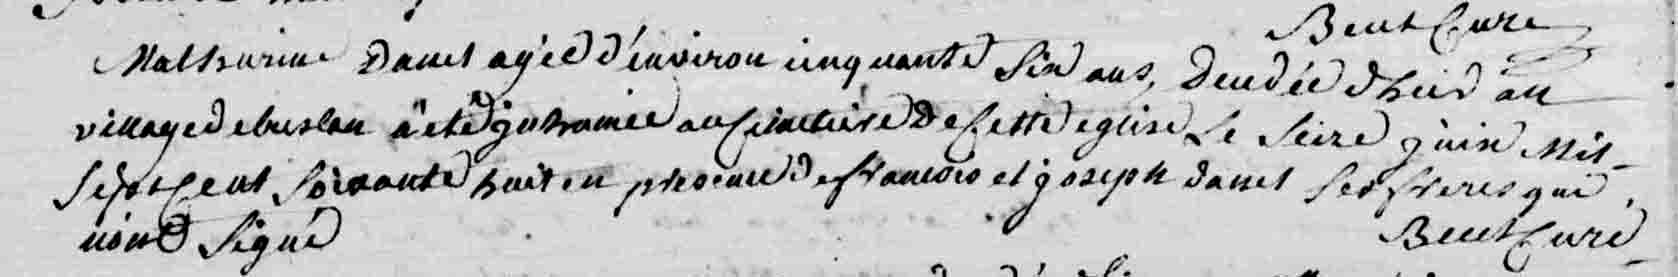 Beut Cure
Mathurine Danet agée d'environ cinquante Six ans, decedée d'hier au
village de buslan a eté inhumée au Cimetiere De Cette eglise Le Seize juin Mil
Sept Cent Soixante huit en presence de francois et joseph danet Ses freres qui
n'ont Signé
Beut Curé